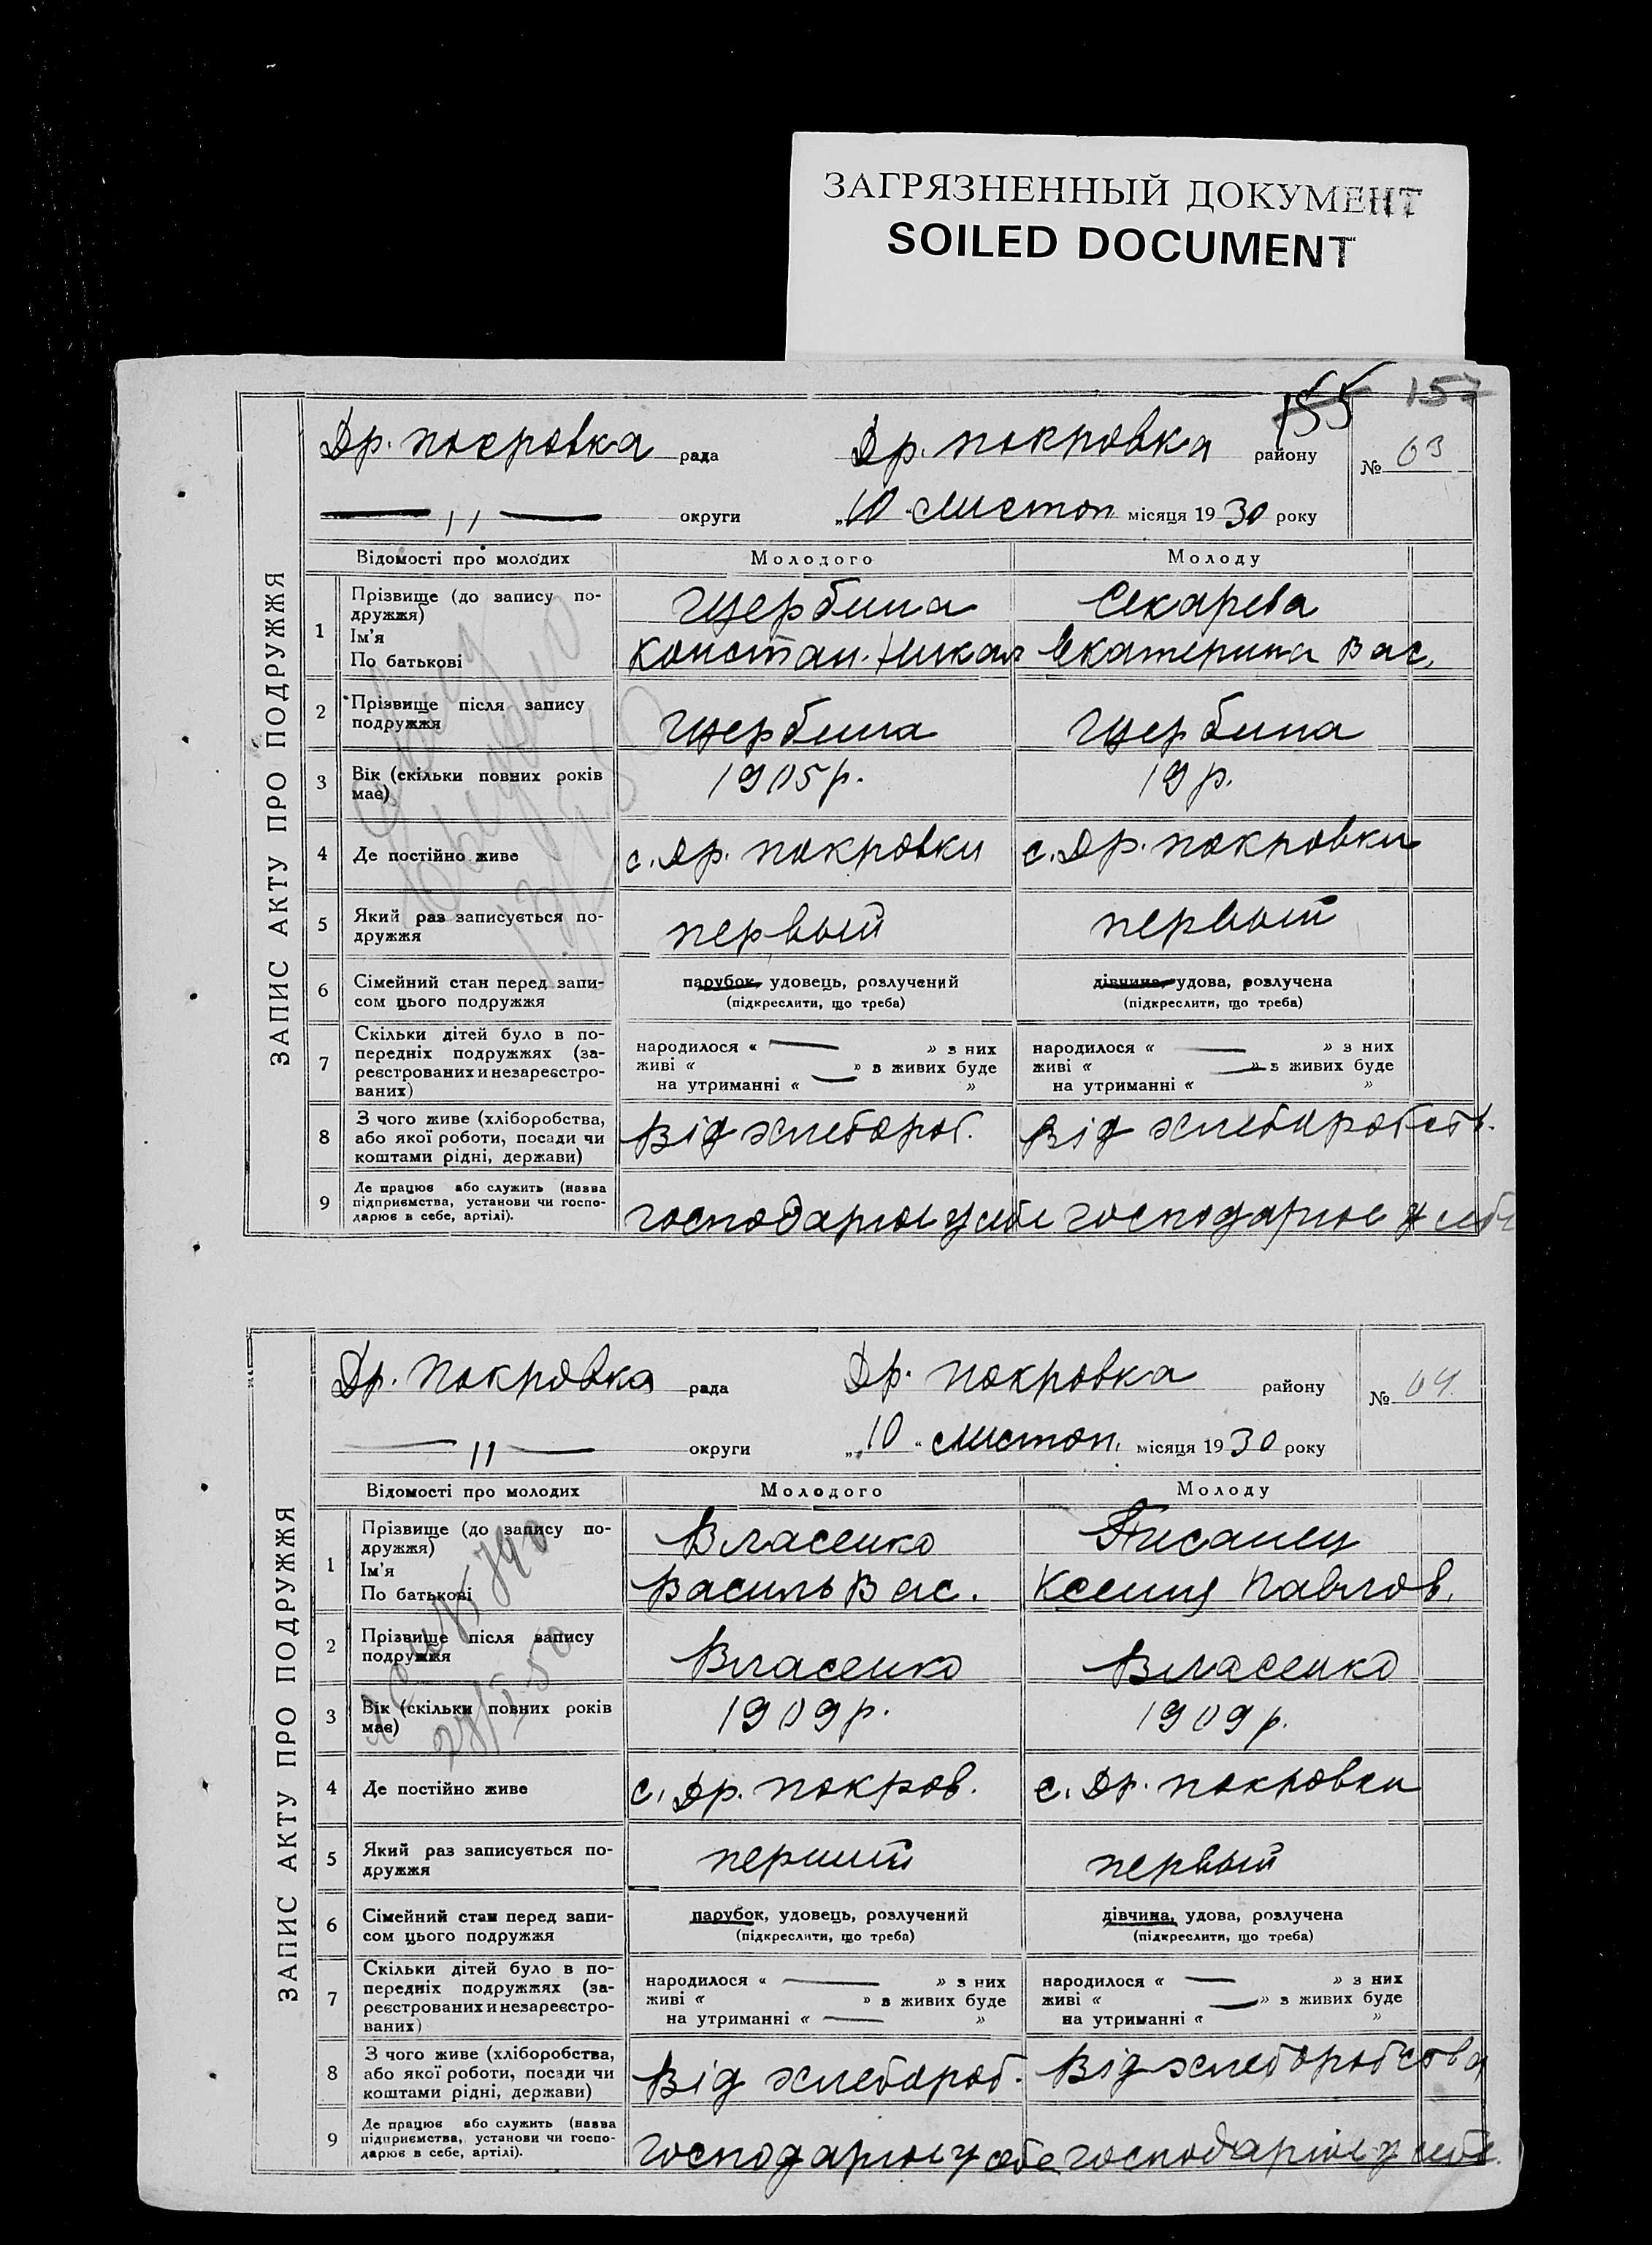 ЗАГРЯЗНЕННЫЙ ДОКУМЕНТ
SOILED DOCUMENT
155 157
ЗАПИС АКТУ ПРО ПОДРУЖЖЯ
Др. покровка рада Др. покровка району № 63
— " — округи „10" листоп місяця 1930 року
Відомості про молодих Молодого Молоду
1 Прізвище (до запису по-
дружжя) Щербина Секарева
Ім'я
По батькові Констан. Никол Екатерина Вас.
2 Прізвище після запису
подружжя Щербина Щербина
3 Вік (скільки повних років
має) 1905 р. 19 р.
4 Де постійно живе с. Др. покровки с. Др. покровки
5 Який раз записується по-
дружжя первый первый
6 Сімейний стан перед запи-
сом цього подружжя парубок, удовець, розлучений дівчина, удова, розлучена
(підкреслити, що треба) (підкреслити, що треба)
7 Скільки дітей було в по-
передніх подружжях (за-
реєстрованих и незареєстро-
ваних)
народилося « — » з них народилося « — » з них
живі « » в живих буде живі « — » з живих буде
на утриманні « — » на утриманні « »
8 З чого живе (хліборобства,
або якої роботи, посади чи
коштами рідні, держави) Від хлебороб. Від хлеборобств.
9 Де працює або служить (назва
підприємства, установи чи госпо-
дарює в себе, артілі). господарює у себе господарює у себе
ЗАПИС АКТУ ПРО ПОДРУЖЖЯ
Др. Покровка рада Др. покровка району № 64
— " — округи „10" листоп. місяця 1930 року
Відомості про молодих Молодого Молоду
1 Прізвище (до запису по-
дружжя) Власенко Писанец
Ім'я
По батькові Василь Вас. Ксения Павлов.
2 Прізвище після запису
подружжя Власенко Власенко
3 Вік (скільки повних років
має) 1909 р. 1909 р.
4 Де постійно живе с. Др. покров. с. Др. покровки
5 Який раз записується по-
дружжя перший первый
6 Сімейний стан перед запи-
сом цього подружжя парубок, удовець, розлучений дівчина, удова, розлучена
(підкреслити, що треба) (підкреслити, що треба)
7 Скільки дітей було в по-
передніх подружжях (за-
реєстрованих и незареєстро-
ваних)
народилося « — » з них народилося « — » з них
живі « » в живих буде живі « — » з живих буде
на утриманні « — » на утриманні « »
8 З чого живе (хліборобства,
або якої роботи, посади чи
коштами рідні, держави) Від хлебороб. Від хлеборобства
9 Де працює або служить (назва
підприємства, установи чи госпо-
дарює в себе, артілі). господарює у себе господарює у себе.